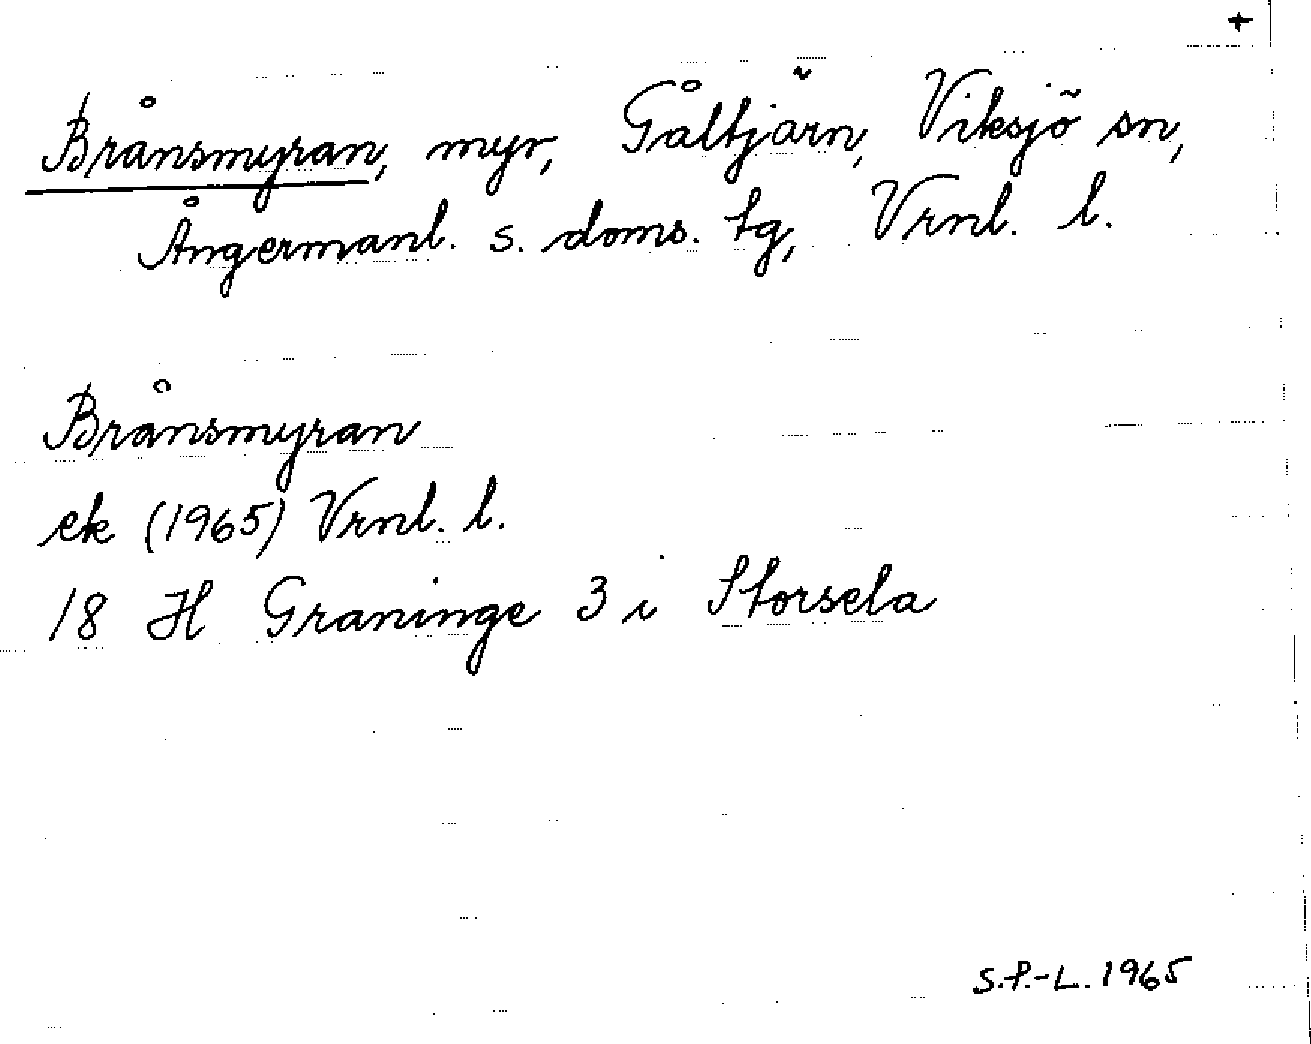 +
Brånsmyran, myr, Gåltjärn, Viksjö sn,
Ångermanl. s. doms. tg, Vrnl. l.
Brånsmyran
ek (1965) Vrnl. l.
18 H Graninge 3 i Storsela
S.P.-L. 1965